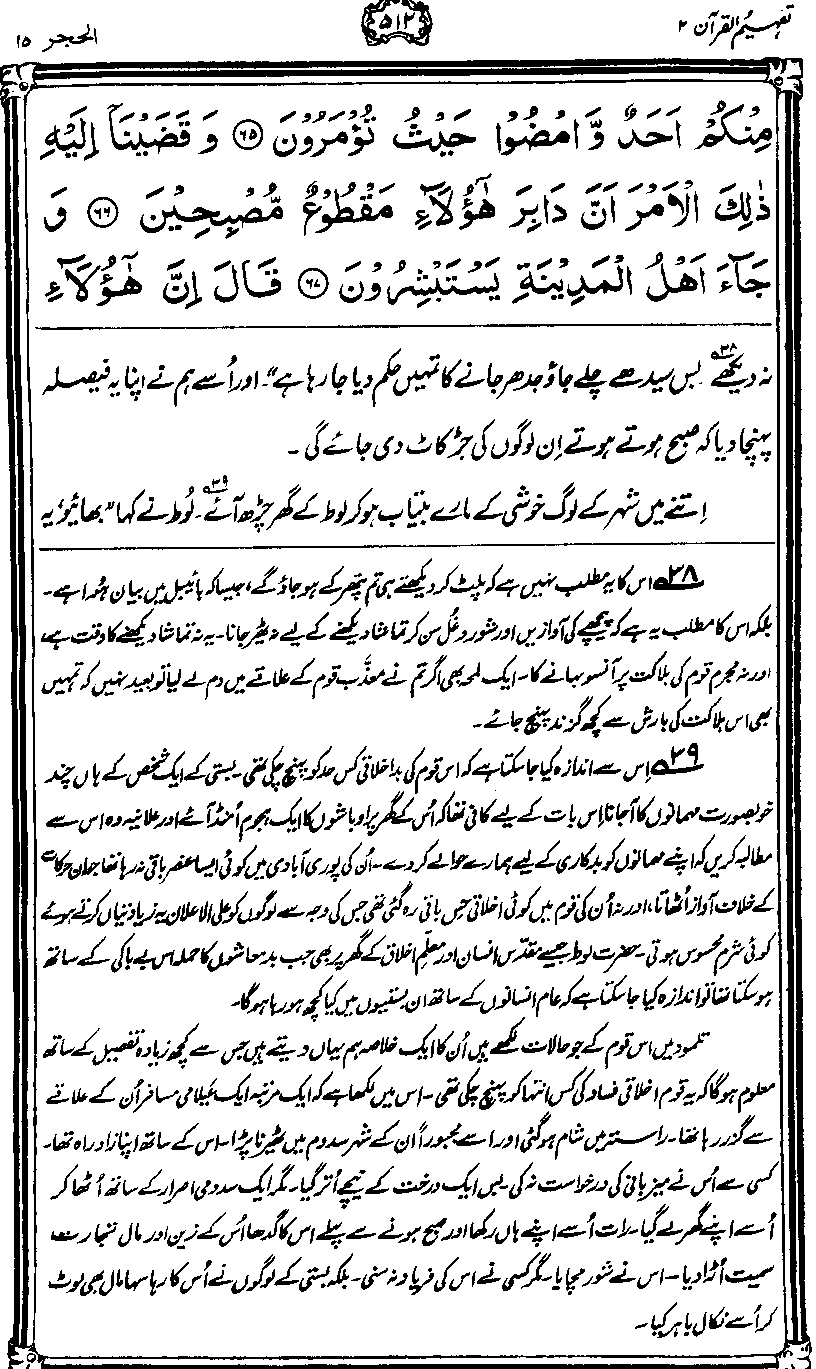 تفہیم القرآن ۲
۵۱۲
الحجر ۱۵
مِنْكُمْ اَحَدٌ وَّامْضُوْا حَيْثُ تُؤْمَرُوْنَ ﴿۶۵﴾ وَ قَضَيْنَآ اِلَيْهِ
ذٰلِكَ الْاَمْرَ اَنَّ دَابِرَ هٰٓؤُلَآءِ مَقْطُوْعٌ مُّصْبِحِيْنَ ﴿۶۶﴾ وَ
جَآءَ اَهْلُ الْمَدِيْنَةِ يَسْتَبْشِرُوْنَ ﴿۶۷﴾ قَالَ اِنَّ هٰٓؤُلَآءِ
نہ دیکھے۳۸۔ بس سیدھے چلے جاؤ جدھر جانے کا تمہیں حکم دیا جا رہا ہے"۔ اور اُسے ہم نے اپنا یہ فیصلہ
پہنچا دیا کہ صبح ہوتے ہوتے اِن لوگوں کی جڑ کاٹ دی جائے گی۔
اِتنے میں شہر کے لوگ خوشی کے مارے بیتاب ہو کر لوط کے گھر چڑھ آئے۳۹۔ لُوط نے کہا "بھائیو، یہ
۳۸ اس کا یہ مطلب نہیں ہے کہ پلٹ کر دیکھتے ہی تم پتھر کے ہو جاؤ گے، جیسا کہ بائیبل میں بیان ہُوا ہے۔
بلکہ اس کا مطلب یہ ہے کہ پیچھے کی آوازیں اور شور و غُل سن کر تماشا دیکھنے کے لیے نہ ٹھیر جانا۔ یہ نہ تماشا دیکھنے کا وقت ہے،
اور نہ مجرم قوم کی ہلاکت پر آنسو بہانے کا۔ ایک لمحہ بھی اگر تم نے معذَّب قوم کے علاقے میں دم لے لیا تو بعید نہیں کہ تمہیں
بھی اس ہلاکت کی بارش سے کچھ گزند پہنچ جائے۔
۳۹ اِس سے اندازہ کیا جا سکتا ہے کہ اس قوم کی بد اخلاقی کس حد کو پہنچ چکی تھی۔ بستی کے ایک شخص کے ہاں چند
خوبصورت مہمانوں کا آجانا اِس بات کے لیے کافی تھا کہ اُس کے گھر پر اوباشوں کا ایک ہجوم اُمنڈ آئے اور علانیہ وہ اس سے
مطالبہ کریں کہ اپنے مہمانوں کو بدکاری کے لیے ہمارے حوالے کر دے۔ اُن کی پوری آبادی میں کوئی ایسا عنصر باقی نہ رہا تھا جو ان حرکات
کے خلاف آواز اُٹھاتا، اور نہ اُن کی قوم میں کوئی اخلاقی حِس باقی رہ گئی تھی جس کی وجہ سے لوگوں کو علی الاعلان یہ زیادتیاں کرتے ہوئے
کوئی شرم محسوس ہوتی۔ حضرت لوط جیسے مقدّس انسان اور معلّمِ اخلاق کے گھر پر بھی جب بدمعاشوں کا حملہ اس بے باکی کے ساتھ
ہو سکتا تھا تو اندازہ کیا جا سکتا ہے کہ عام انسانوں کے ساتھ ان بستیوں میں کیا کچھ ہو رہا ہو گا۔
تلمود میں اس قوم کے جو حالات لکھے ہیں اُن کا ایک خلاصہ ہم یہاں دیتے ہیں جس سے کچھ زیادہ تفصیل کے ساتھ
معلوم ہو گا کہ یہ قوم اخلاقی فساد کی کس انتہا کو پہنچ چکی تھی۔ اس میں لکھا ہے کہ ایک مرتبہ ایک عَیلامی مسافر اُن کے علاقے
سے گزر رہا تھا۔ راستہ میں شام ہو گئی اور اسے مجبوراً اُن کے شہر سدوم میں ٹھیرنا پڑا۔ اس کے ساتھ اپنا زادِ راہ تھا۔
کسی سے اُس نے میزبانی کی درخواست نہ کی۔ بس ایک درخت کے نیچے اُتر گیا۔ مگر ایک سدومی اصرار کے ساتھ اُٹھا کر
اُسے اپنے گھر لے گیا۔ رات اُسے اپنے ہاں رکھا اور صبح ہونے سے پہلے اس کا گدھا اُس کے زین اور مال تجارت
سمیت اُڑا دیا۔ اس نے شور مچایا۔ مگر کسی نے اس کی فریاد نہ سنی۔ بلکہ بستی کے لوگوں نے اُس کا رہا سہا مال بھی لوٹ
کر اُسے نکال باہر کیا۔